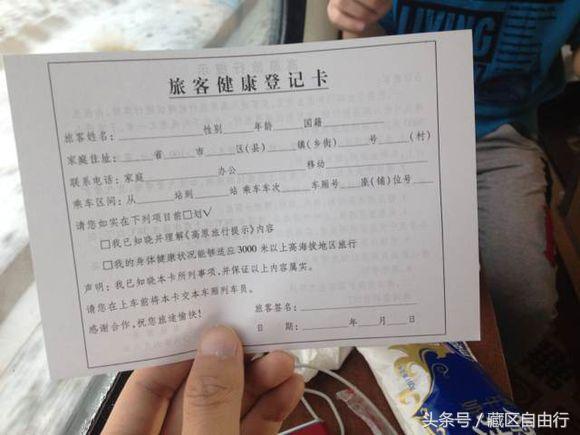 旅客健康登记卡
旅客姓名：________性别____年龄____国籍________
家庭住址：____省____市____区(县)____镇(乡街)____号____(村)
联系电话：家庭________办公________移动________
乘车区间：从____站到____站 乘车车次____车厢号____座(铺)位号____
请您如实在下列项目前□划√
□我已知晓并理解《高原旅行提示》内容
□我的身体健康状况能够适应3000米以上高海拔地区旅行
声明：我已知晓本卡所列事项，并保证以上内容属实。
请您在上车前将本卡交本车厢列车员。
感谢合作，祝您旅途愉快！
旅客签名：________
日 期：____年____月____日
LIVING
头条号／藏区自由行